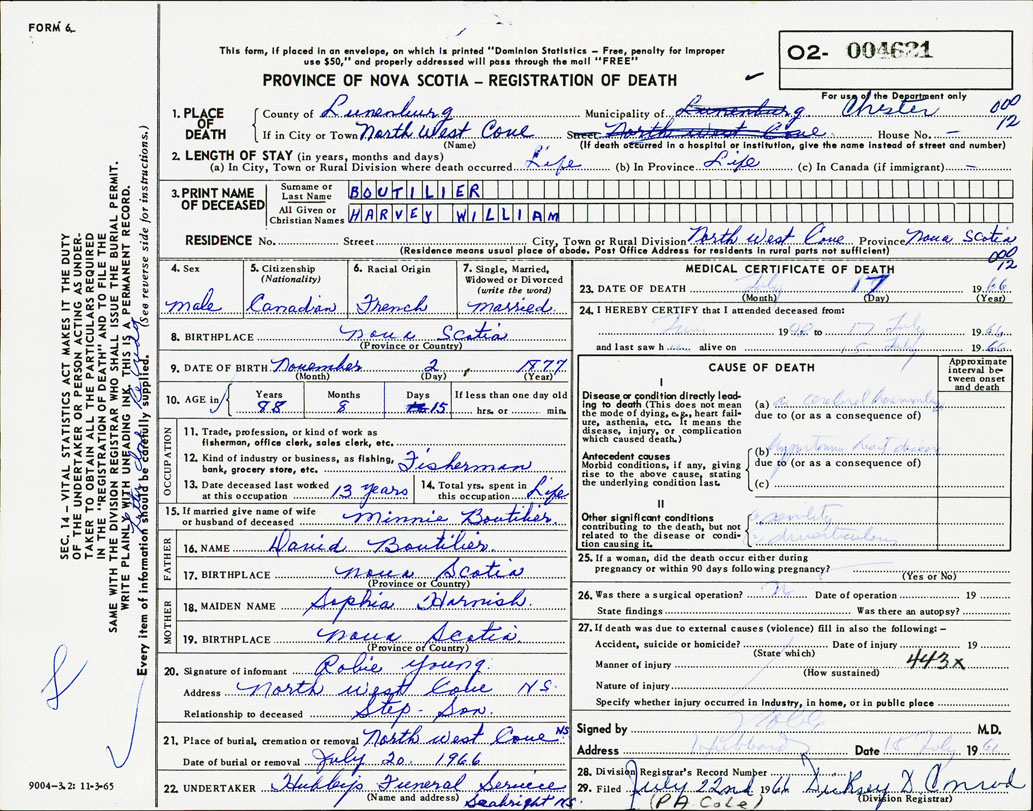 FORM 6
This form, if placed in an envelope, on which is printed "Dominion Statistics – Free, penalty for improper
use $50," and properly addressed will pass through the mail "FREE"
PROVINCE OF NOVA SCOTIA – REGISTRATION OF DEATH
O2- 004621
For use of the Department only
1. PLACE OF DEATH County of Lunenburg Municipality of Lunenburg Chester 000 12
If in City or Town North West Cove Street North West Cove House No. –
(Name) (If death occurred in a hospital or institution, give the name instead of street and number)
2. LENGTH OF STAY (in years, months and days)
(a) In City, Town or Rural Division where death occurred Life (b) In Province Life (c) In Canada (if immigrant) –
3. PRINT NAME OF DECEASED Surname or Last Name BOUTILIER
All Given or Christian Names HARVEY WILLIAM
RESIDENCE No. Street City, Town or Rural Division North West Cove Province Nova Scotia
(Residence means usual place of abode. Post Office Address for residents in rural parts not sufficient) 000 12
4. Sex male
5. Citizenship (Nationality) Canadian
6. Racial Origin French
7. Single, Married, Widowed or Divorced (write the word) married
8. BIRTHPLACE Nova Scotia
(Province or Country)
9. DATE OF BIRTH November 2, 1877
(Month) (Day) (Year)
10. AGE in Years 88 Months 8 Days 15 If less than one day old hrs. or min.
OCCUPATION
11. Trade, profession, or kind of work as
fisherman, office clerk, sales clerk, etc.
12. Kind of industry or business, as fishing,
bank, grocery store, etc. Fisherman
13. Date deceased last worked at this occupation 13 years
14. Total yrs. spent in this occupation Life
15. If married give name of wife
or husband of deceased Minnie Boutilier
FATHER
16. NAME David Boutilier
17. BIRTHPLACE Nova Scotia
(Province or Country)
MOTHER
18. MAIDEN NAME Sophia Harnish
19. BIRTHPLACE Nova Scotia
(Province or Country)
20. Signature of informant Robie Young
Address North West Cove N.S.
Relationship to deceased Step-Son
21. Place of burial, cremation or removal North West Cove NS
Date of burial or removal July 20, 1966
22. UNDERTAKER Hubley's Funeral Service
(Name and address) Seabright N.S.
MEDICAL CERTIFICATE OF DEATH
23. DATE OF DEATH July 17 1966
(Month) (Day) (Year)
24. I HEREBY CERTIFY that I attended deceased from:
19 to 17 July 1966
and last saw h alive on July 1966
CAUSE OF DEATH
Approximate interval between onset and death
I
Disease or condition directly leading to death (This does not mean
the mode of dying, e.g., heart failure, asthenia, etc. It means the
disease, injury, or complication which caused death.)
(a) cerebral
due to (or as a consequence of)
Antecedent causes
Morbid conditions, if any, giving rise to the above cause, stating
the underlying condition last.
(b) heart disease
due to (or as a consequence of)
(c)
II
Other significant conditions
contributing to the death, but not related to the disease or condition causing it.
senility
25. If a woman, did the death occur either during
pregnancy or within 90 days following pregnancy?
(Yes or No)
26. Was there a surgical operation? Date of operation 19
State findings Was there an autopsy?
27. If death was due to external causes (violence) fill in also the following: –
Accident, suicide or homicide? Date of injury 19
(State which)
Manner of injury 443x
(How sustained)
Nature of injury
Specify whether injury occurred in Industry, in home, or in public place
Signed by M.D.
Address Date 18 July 1966
28. Division Registrar's Record Number
29. Filed July 22nd 1966 D Conrod
(P.A. Cole) (Division Registrar)
SEC. 14 – VITAL STATISTICS ACT MAKES IT THE DUTY
OF THE UNDERTAKER OR PERSON ACTING AS UNDER-
TAKER TO OBTAIN ALL THE PARTICULARS REQUIRED
IN THE "REGISTRATION OF DEATH" AND TO FILE THE
SAME WITH THE DIVISION REGISTRAR WHO SHALL ISSUE THE BURIAL PERMIT.
WRITE PLAINLY WITH UNFADING INK. THIS IS A PERMANENT RECORD.
Every item of information should be carefully supplied. (See reverse side for instructions.)
9004-3.2: 11-3-65